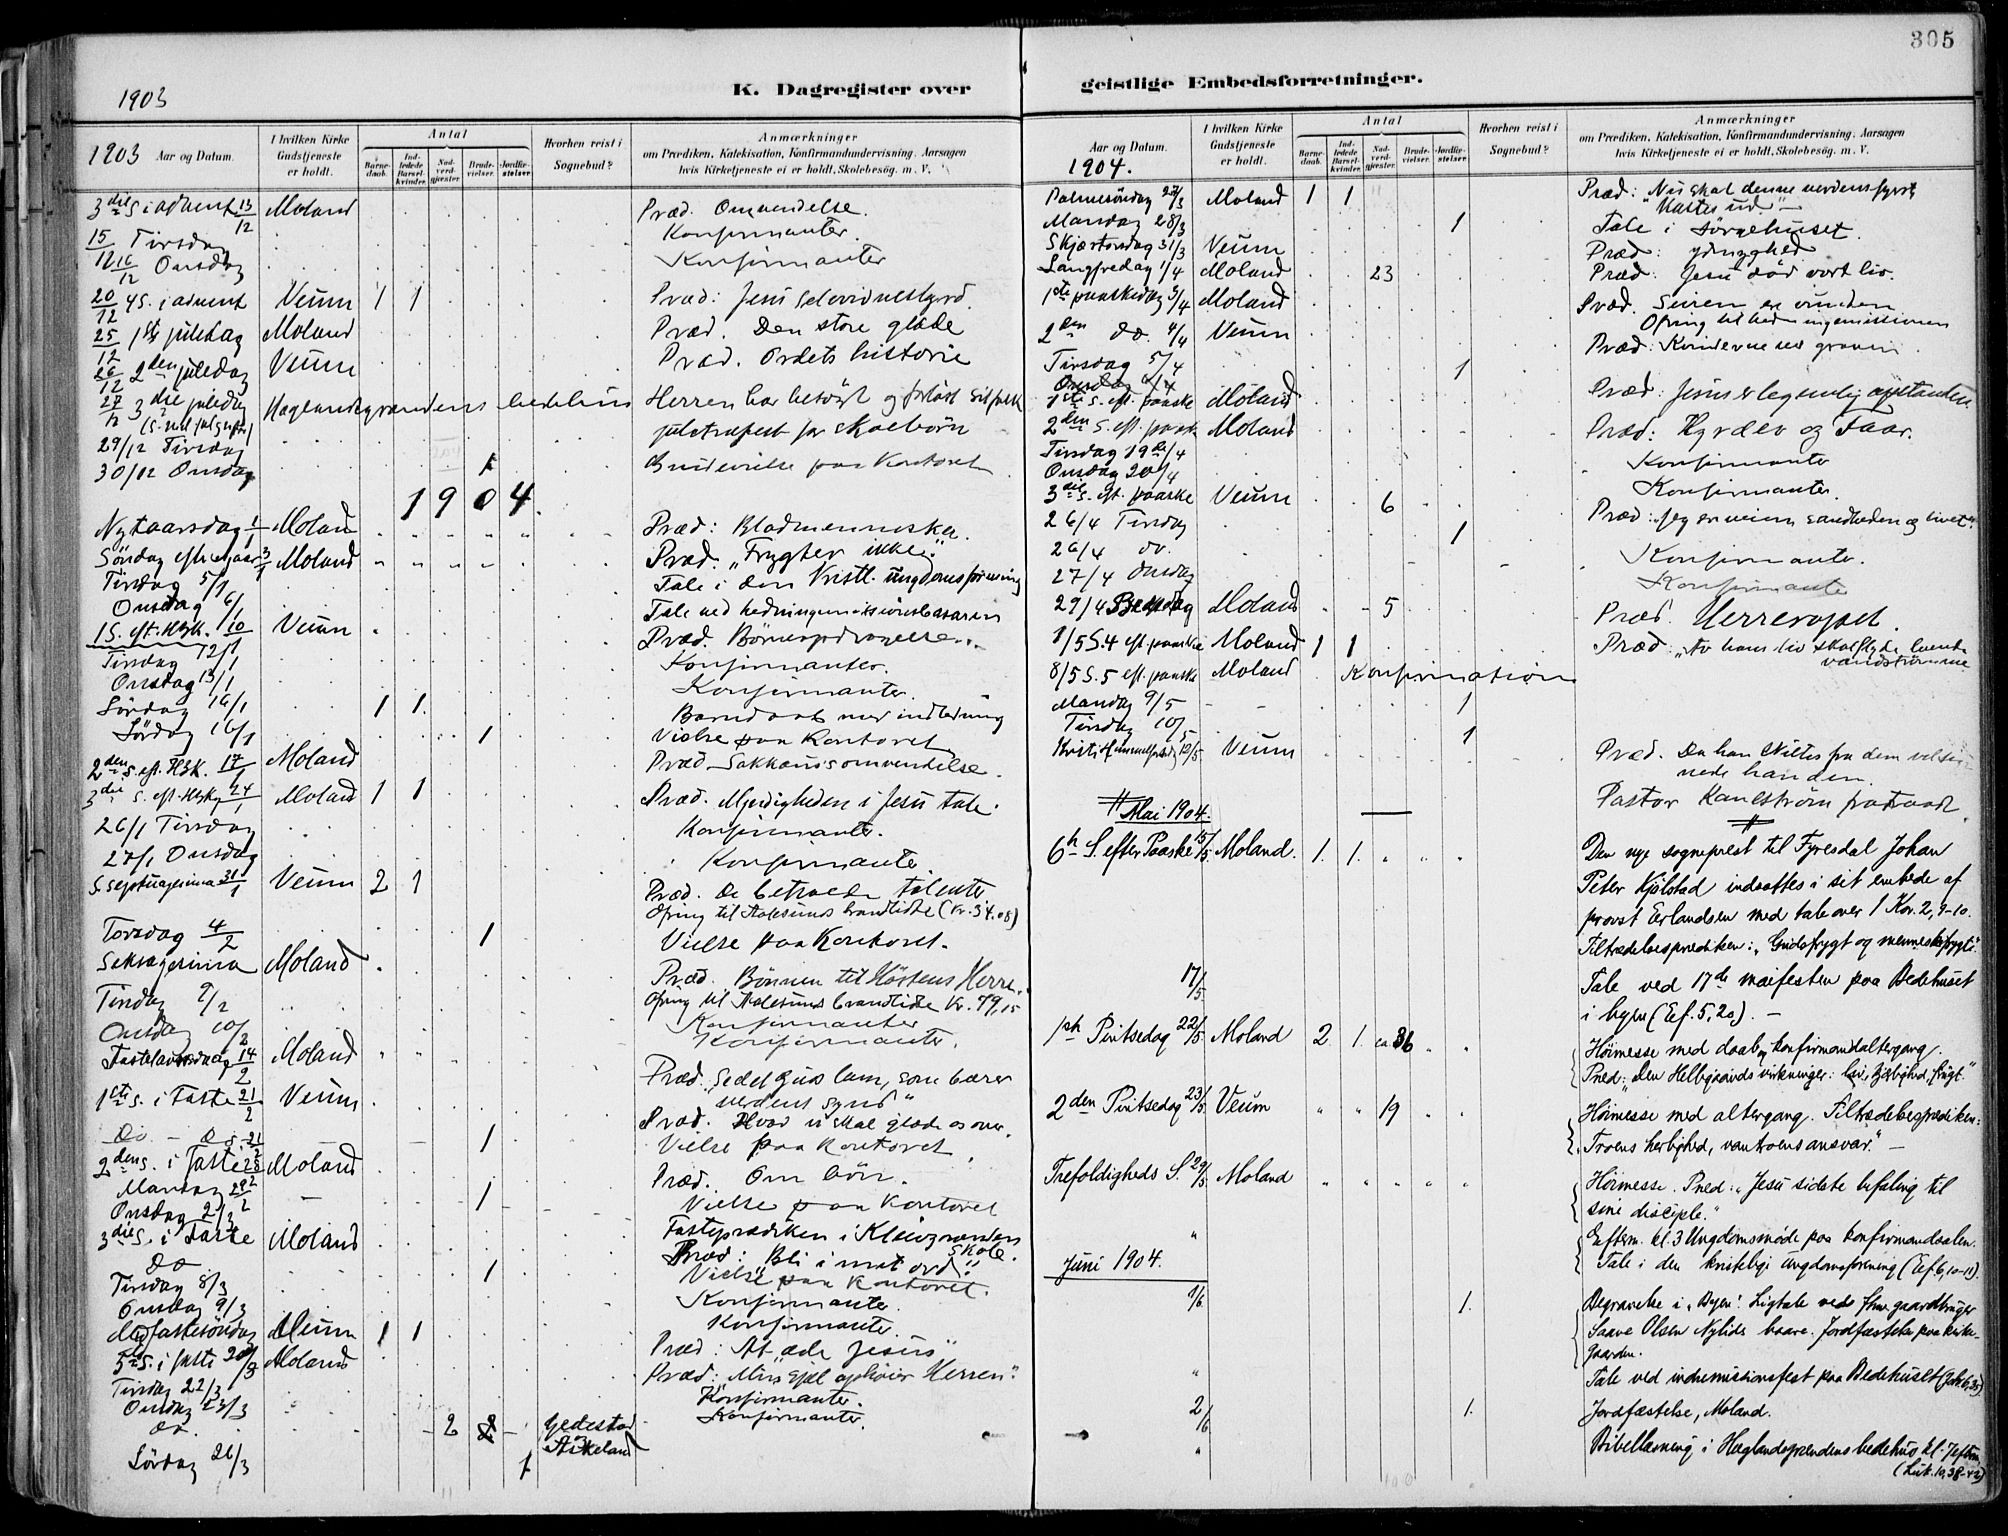 305
1903
K. Dagregister over geistlige Embedsforretninger.
1903 Aar og Datum.
I hvilken Kirke Gudstjeneste er holdt.
Antal
Barnedaab.
Indledede Barselkvinder.
Nadverdgjester.
Brudevielser.
Jordfæstelser
Hvorhen reist i Sognebud?
Anmærkninger
om Prædiken, Katekisation, Konfirmandundervisning, Aarsagen
hvis Kirketjeneste ei er holdt, Skolebesøg. m. V.
3die S. i advent 13/12 Moland Præd. Omvendelse.
15/12 Tirsdag Konfirmanter.
16/12 Onsdag Konfirmanter
20/12 4 S. i advent Veum 1 1 Præd: Jesu selvvidnesbyrd.
25/12 1ste juledag Moland Præd. Den store glæde
26/12 2den juledag Veum Præd. Ordets historie
27/12 3die juledag Haglandsgrændens bedehus Herren har besøgt og forløst sit folk
(S. mel. jul og nytaar)
29/12 Tirsdag juletræfest for skolebørn
30/12 Onsdag 1 Brudevielse paa Kontoret
1904.
Nytaarsdag 1/1 Moland Præd: Bladmenneska.
Söndag efter nytaar 3/1 Moland Præd. "Frygter ikke."
Tirsdag 5/1 Tale i den Kristl. ungdomsforening
Onsdag 6/1 Tale ved hedningemissionsbasaren
1 S. eft. H3k. 10/1 Veum Præd. Börneopdragelse.
Tirsdag 12/1 Konfirmanter.
Onsdag 13/1 Konfirmanter.
Lördag 16/1 1 1 Barnedaab med indledning
Lördag 16/1 1 Vielse paa Kontoret
2den S. eft. H3k. 17/1 Moland Præd. Sakkæus's omvendelse.
3die S. eft. H3k. 24/1 Moland 1 1 Præd. Myndigheden i Jesu tale.
26/1 Tirsdag Konfirmanter.
27/1 Onsdag Konfirmanter
S. septuagesima 31/1 Veum 2 1 Præd. De betroede talenter
Ofring til Aalesunds brandlidte (Kr. 34.08)
Torsdag 4/2 1 Vielse paa Kontoret.
Seksagesima Moland Præd. Bönnen til Höstens Herre.
Ofring til Aalesunds brandlidte Kr. 79,15
Tirsdag 9/2 Konfirmanter
Onsdag 10/2 Konfirmanter.
Fastelavnsöndag 14/2 Moland Præd. "Se det Guds lam, som bærer
verdens synd"
1ste S. i Faste 21/2 Veum Præd. Hvad vi skal glæde os over.
Do. - Do. 21/2 1 Vielse paa Kontoret.
2den S. i Faste 28/2 Moland Præd. Om bön.
Mandag 29/2 1 Vielse paa Kontoret
Onsdag 2/3 Fasteprædiken i Kleivgrændens
skole.
3die S. i Faste Moland Præd: "Bli i mit ord".
Do. 1 Vielse paa Kontoret.
Tirsdag 8/3 Konfirmanter.
Onsdag 9/3 Konfirmanter.
Midfastesöndag Veum 1 1 Præd: At æde Jesus"
5te S. i faste 20/3 Moland Præd: "Min sjæl ophöier Herren".
Tirsdag 22/3 Konfirmanter.
Onsdag 23/3 Konfirmanter.
Do. 2 Gjedestad
Askeland
Lördag 26/3 1
Aar og Datum.
1904.
I hvilken Kirke Gudstjeneste er holdt.
Antal
Barnedaab.
Indledede Barselkvinder.
Nadverdgjester.
Brudevielser.
Jordfæstelser
Hvorhen reist i Sognebud?
Anmærkninger
om Prædiken, Katekisation, Konfirmandundervisning, Aarsagen
hvis Kirketjeneste ei er holdt, Skolebesøg. m. V.
Palmesöndag 27/3 Moland 1 1 Præd: "Nu skal denne verdens fyrste
kastes ud."
Mandag 28/3 1 Tale i sörgehuset.
Skjærtorsdag 31/3 Veum Præd: ydmyghed
Langfredag 1/4 Moland 23 Præd: Jesu död vort liv.
1ste paaskedag 3/4 Moland Præd. Seiren er vunden
Ofring til hedningemissionen
2den do. 4/4 Veum Præd: Kvinderne ved graven.
Tirsdag 5/4 1
Onsdag 6/4
1ste S. eft. paaske Moland Præd: Jesus er legemlig opstanden.
2den S. eft. paaske Moland Præd: Hyrder og Faar.
Tirsdag 19de/4 Konfirmanter
Onsdag 20/4 Konfirmanter.
3die S. eft. paaske Veum 6 Præd: "Jeg er veien sandheden og livet".
26/4 Tirsdag 1
26/4 do. Konfirmanter.
27/4 Onsdag Konfirmanter
29/4 Bededag Moland 5 Præd. Herreropet.
1/5 S. 4 eft. paaske Moland 1 1 Præd: "Av hans liv skal flyde levende
vandströmme
8/5 S. 5 eft. paaske Moland Konfirmation
Mandag 9/5 1
Tirsdag 10/5 1
Kristi Himmelfartsdag 12/5 Veum Præd. Da han skiltes fra dem velsig-
nede han dem.
Pastor fratraadt.
Mai 1904.
6te S. efter Paaske 15/5 Moland. 1. 1. Den nye sogneprest til Fyresdal Johan
Peter Kjölstad indsattes i sit embede af
provst Erlandsen med tale over 1 Kor. 2, 9-10.
Tiltrædelsesprædiken: "Gudsfrygt og menneskefrygt."
17/5 Tale ved 17de maifesten paa Bedehuset
i byen (Ef. 5, 20). -
1ste Pintsedag 22/5 Moland 2. 1. ca 36 Höimesse med daab og konfirmandaltergang.
Præd: "Den Helligaands virkninger: liv, kjærlighed, frugt."
2den Pintsedag 23/5 Veum 19 Höimesse med altergang. Tiltrædelsesprædiken:
"Troens herlighed, vantroens ansvar." -
Trefoldigheds S. 29/5 Moland Höimesse. Præd: "Jesu sidste befaling til
sine disciple."
" Efterm. kl. 3 Ungdomsmöde paa konfirmandsalen.
Tale i den kristelige ungdomsforening (Ef. 6, 10-11).
Juni 1904.
1/6. 1. Begravelse i "Byen". Ligtale ved fhv. gaardbruger
Saave Olsen Nylids baare. Jordfæstelse paa kirke-
gaarden.
" Tale ved indremissionsfest paa Bedehuset (Joh. 6, 35)
2/6 1. Jordfæstelse, Moland.
" Bibellæsning i Haglandsgrændens bedehus kl. 7 eftm.
(Luk. 10, 38-42)